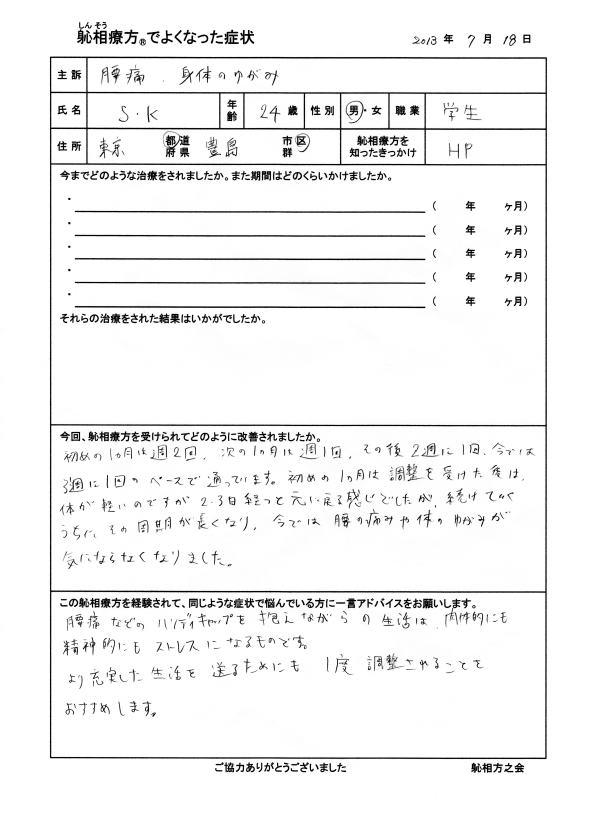 しん そう
恥相療方®でよくなった症状
2013 年 7 月 18 日
主訴 腰痛、身体のゆがみ
氏名 S.K 年齢 24 歳 性別 男・女 職業 学生
住所 東京 都道府県 豊島 市区群 恥相療方を知ったきっかけ HP
今までどのような治療をされましたか。また期間はどのくらいかけましたか。
・ ( 年 ヶ月)
・ ( 年 ヶ月)
・ ( 年 ヶ月)
・ ( 年 ヶ月)
・ ( 年 ヶ月)
それらの治療をされた結果はいかがでしたか。
今回、恥相療方を受けられてどのように改善されましたか。
初めの1ヵ月は週2回、次の1ヵ月は週1回、その後2週に1回、今では
3週に1回のペースで通っています。初めの1ヵ月は調整を受けた後は、
体が軽いのですが2-3日経つと元に戻る感じでしたが、続けていく
うちに、その周期が長くなり、今では腰の痛みや体のゆがみが
気にならなくなりました。
この恥相療方を経験されて、同じような症状で悩んでいる方に一言アドバイスをお願いします。
腰痛などのハンディキャップを抱えながらの生活は、肉体的にも
精神的にもストレスになるものです。
より充実した生活を送るためにも1度調整されることを
おすすめします。
ご協力ありがとうございました
恥相方之会